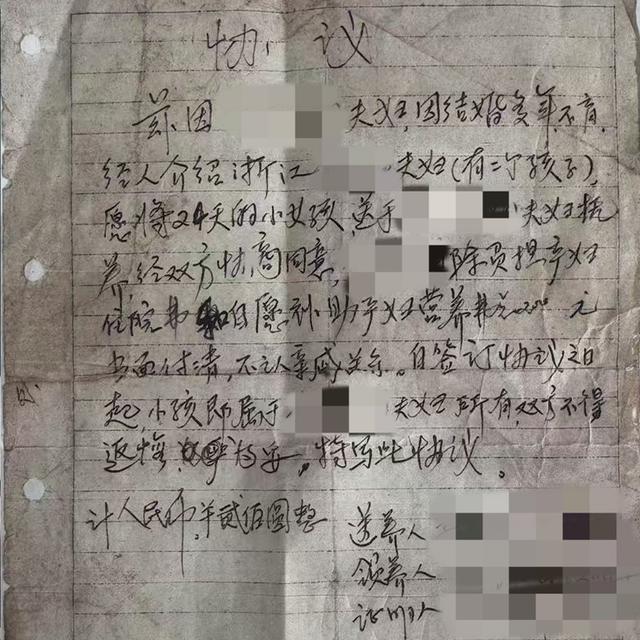 协议
兹因 夫妇,因结婚多年不育,
经人介绍浙江 夫妇(有二个孩子),
愿将24天的小女孩送于 夫妇抚
养,经双方协商同意, 除负担产妇
住院 和自愿补助产妇营养费 元
当面付清,不认亲戚关系。自签订协议之日
起,小孩即属于 夫妇所有,双方不得
返悔, 特写此协议。
计人民币 贰佰圆整
送养人
领养人
证明人